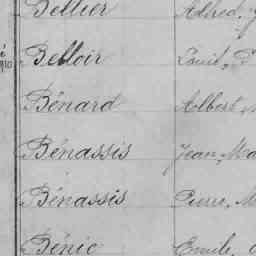 Bellier Alfred,
Belloir Louis,
Bénard Albert,
Bénassis Jean, Ma
Bénassis Pierre, M
Bénic Emile,